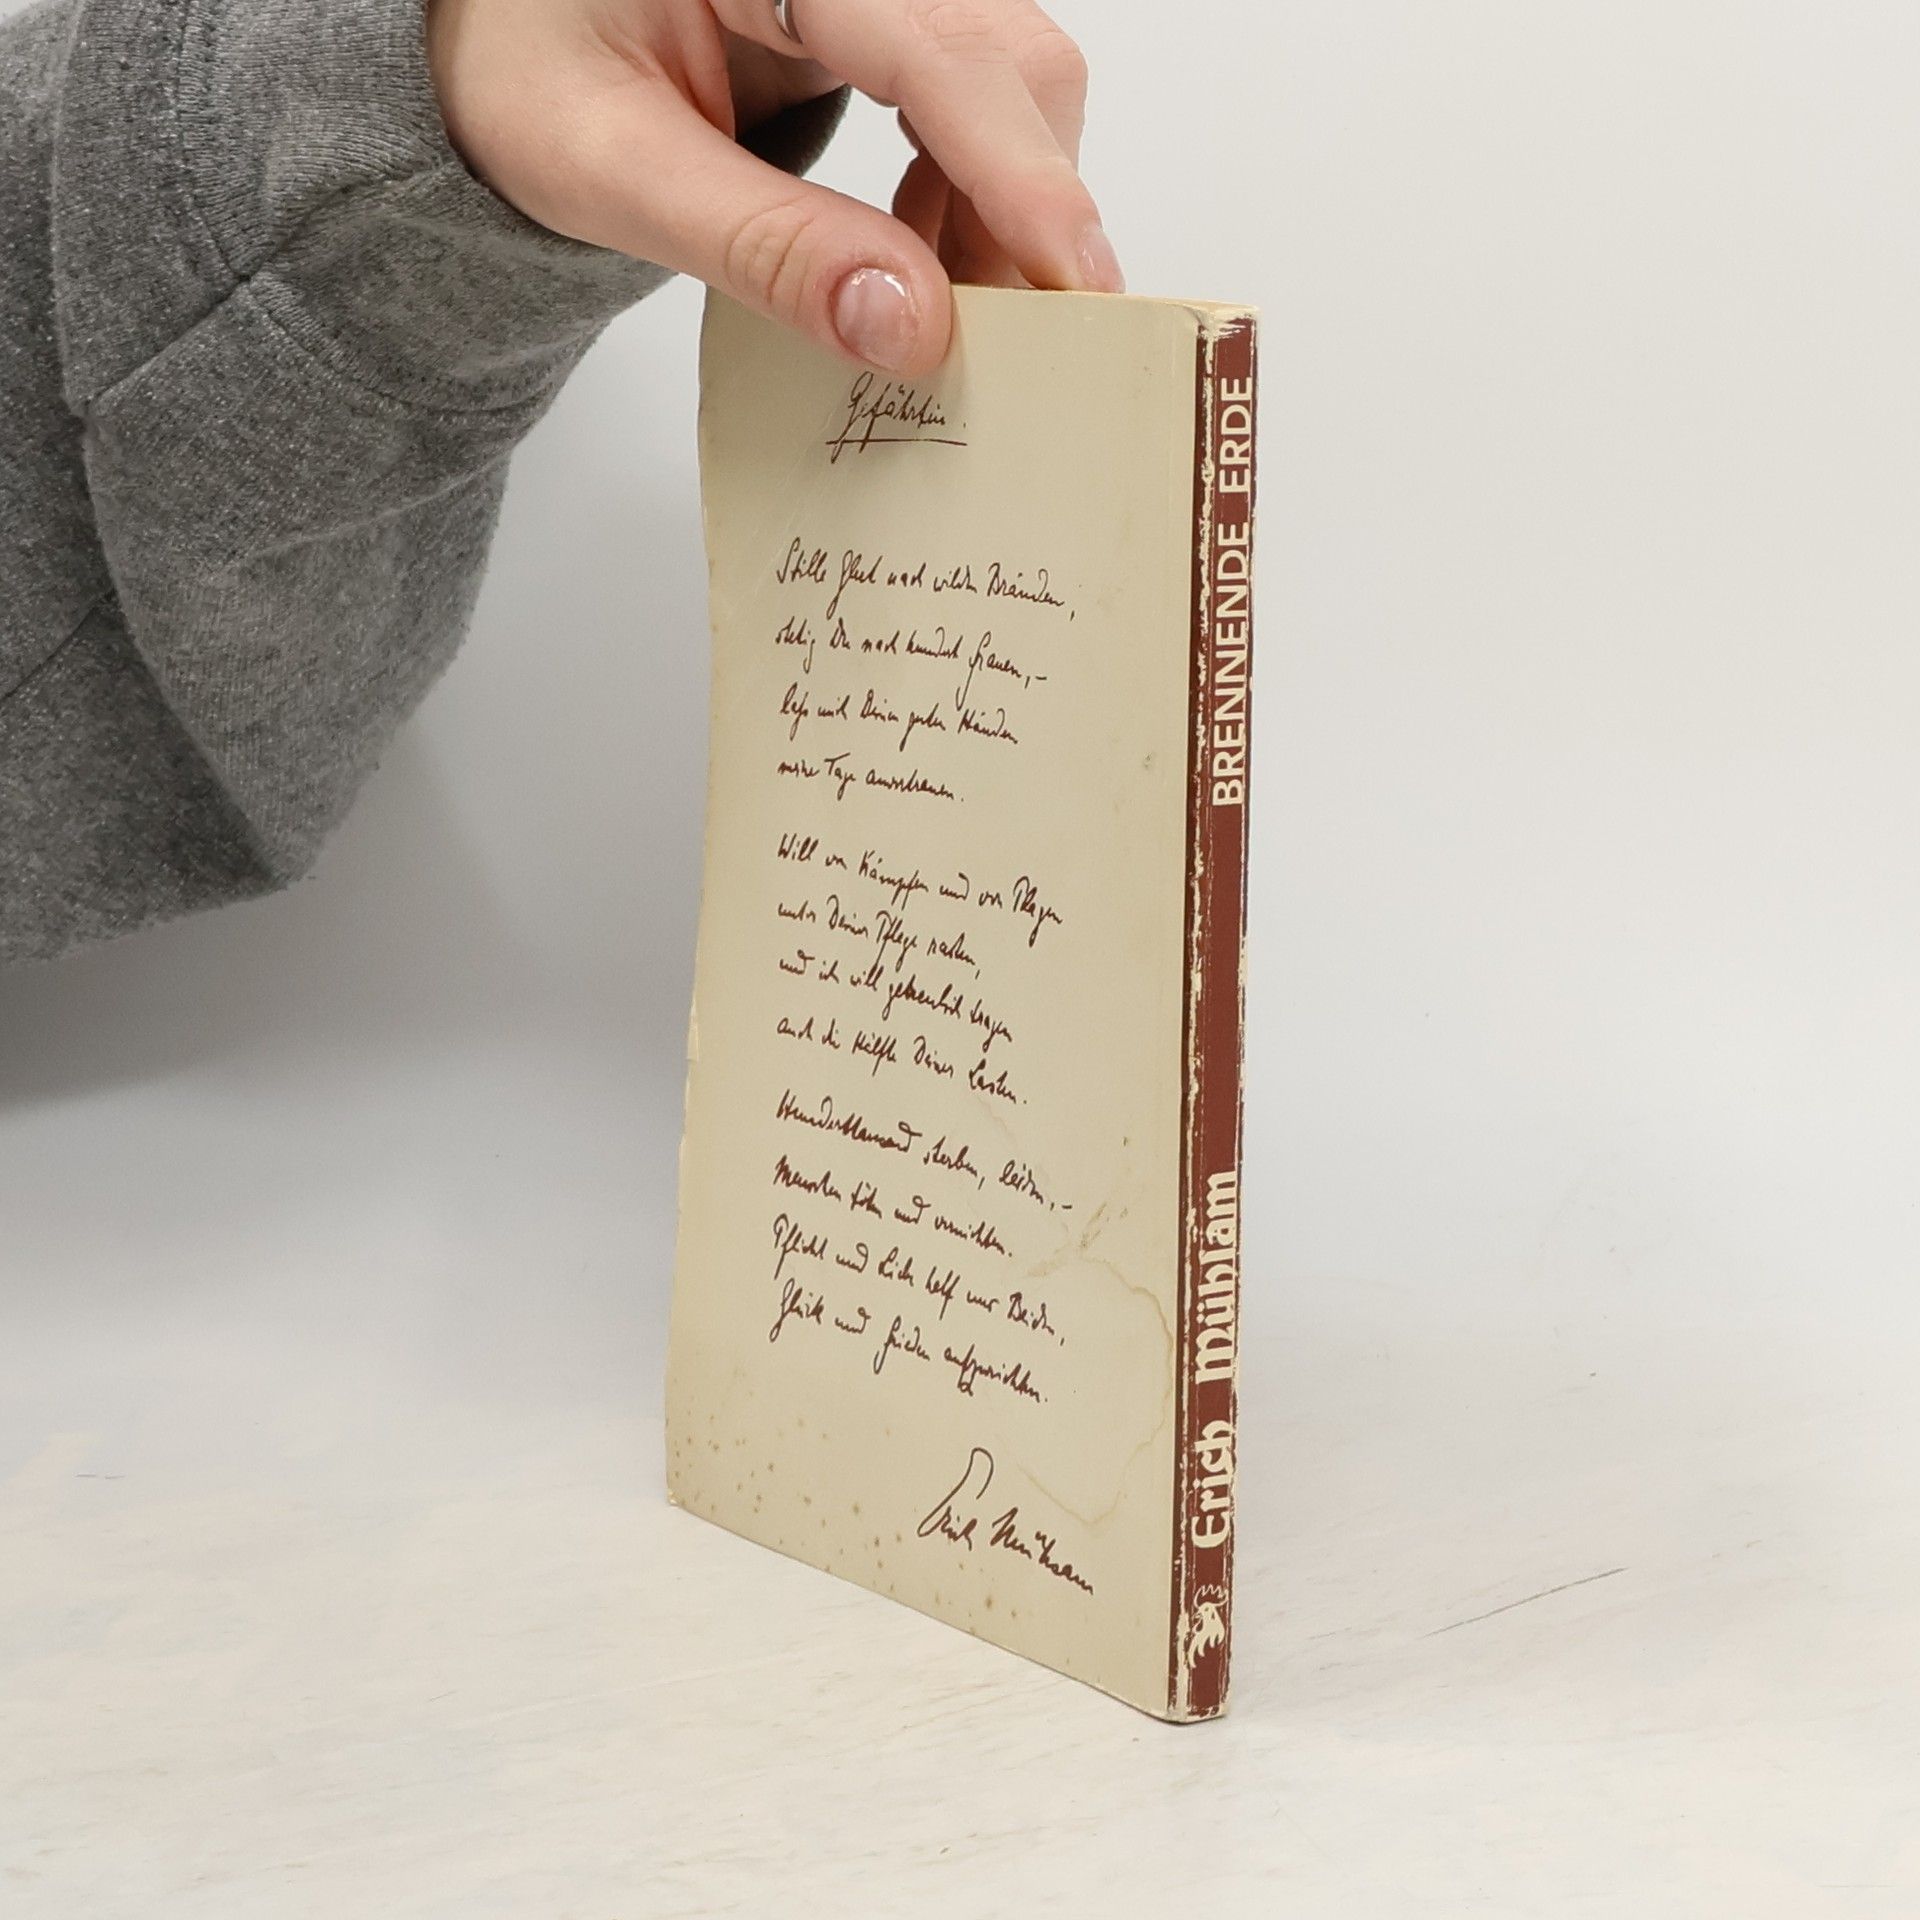 Gefährtin.
Stille Glut nach wilden Bränden,
stetig Du nach hundert Frauen, –
lass mich Deinen guten Händen
meine Tage anvertrauen.
Will von Kämpfen und von Plagen
unter Deiner Pflege rasten,
und ich will getreulich tragen
auch die Hälfte Deiner Lasten.
Hunderttausend sterben, leiden, –
Menschen töten und vernichten.
Pflicht und Liebe helf uns Beiden,
Glück und Frieden aufzurichten.
Erich Mühsam
BRENNENDE ERDE
Erich Mühsam